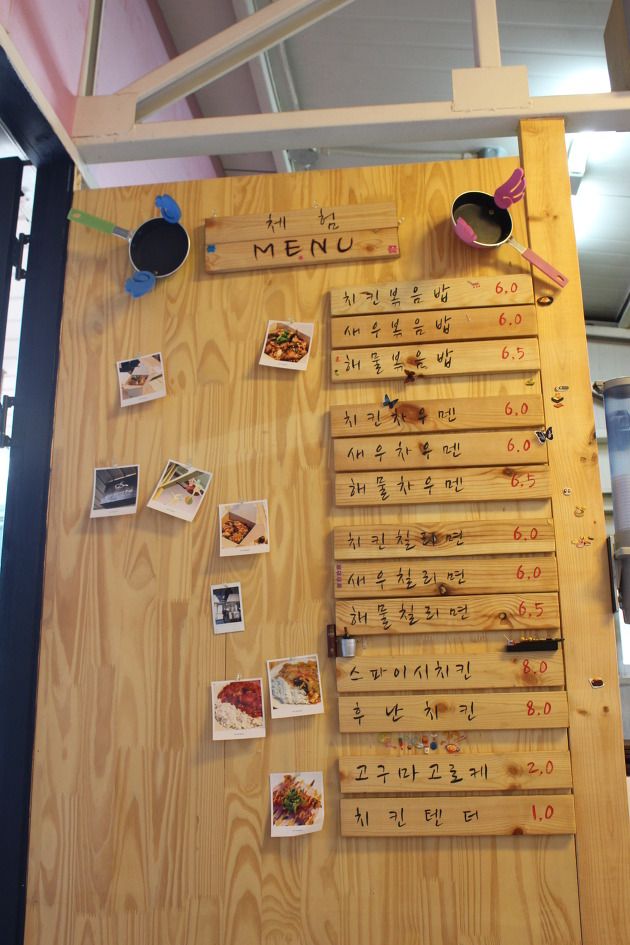 체험
MENU
치킨볶음밥 6.0
새우볶음밥 6.0
해물볶음밥 6.5
치킨차우멘 6.0
새우차우멘 6.0
해물차우멘 6.5
치킨칠리면 6.0
새우칠리면 6.0
해물칠리면 6.5
스파이시치킨 8.0
후난치킨 8.0
고구마고로케 2.0
치킨텐더 1.0